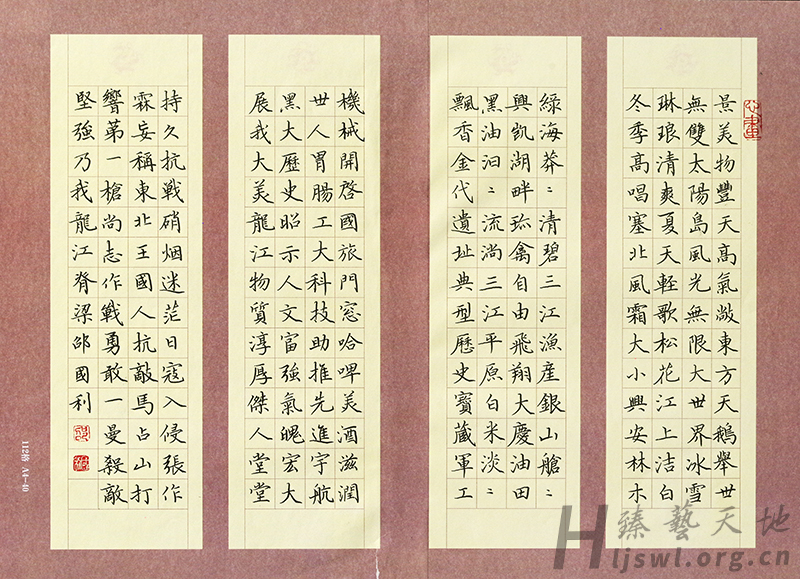 心畫
景美物豐天高氣敞東方天鵝舉世
無雙太陽島風光無限大世界冰雪
琳琅清爽夏天輕歌松花江上洁白
冬季高唱塞北風霜大小興安林木
綠海莽〻清碧三江漁産銀山艙〻
興凱湖畔珎禽自由飛翔大慶油田
黑油汩〻流淌三江平原白米淡〻
飄香金代遺址典型歷史寳藏軍工
機械開啓國旅門窓哈啤美酒滋潤
世人胃腸工大科技助推先進宇航
黑大歷史昭示人文富強氣魄宏大
展我大美龍江物質淳厚傑人堂堂
持久抗戰硝烟迷茫日寇入侵張作
霖妄稱東北王國人抗敵馬占山打
響第一槍尚志作戰勇敢一曼殺敵
堅強乃我龍江脊梁國利
112格 A4-40
臻藝天地
Hljswl.org.cn